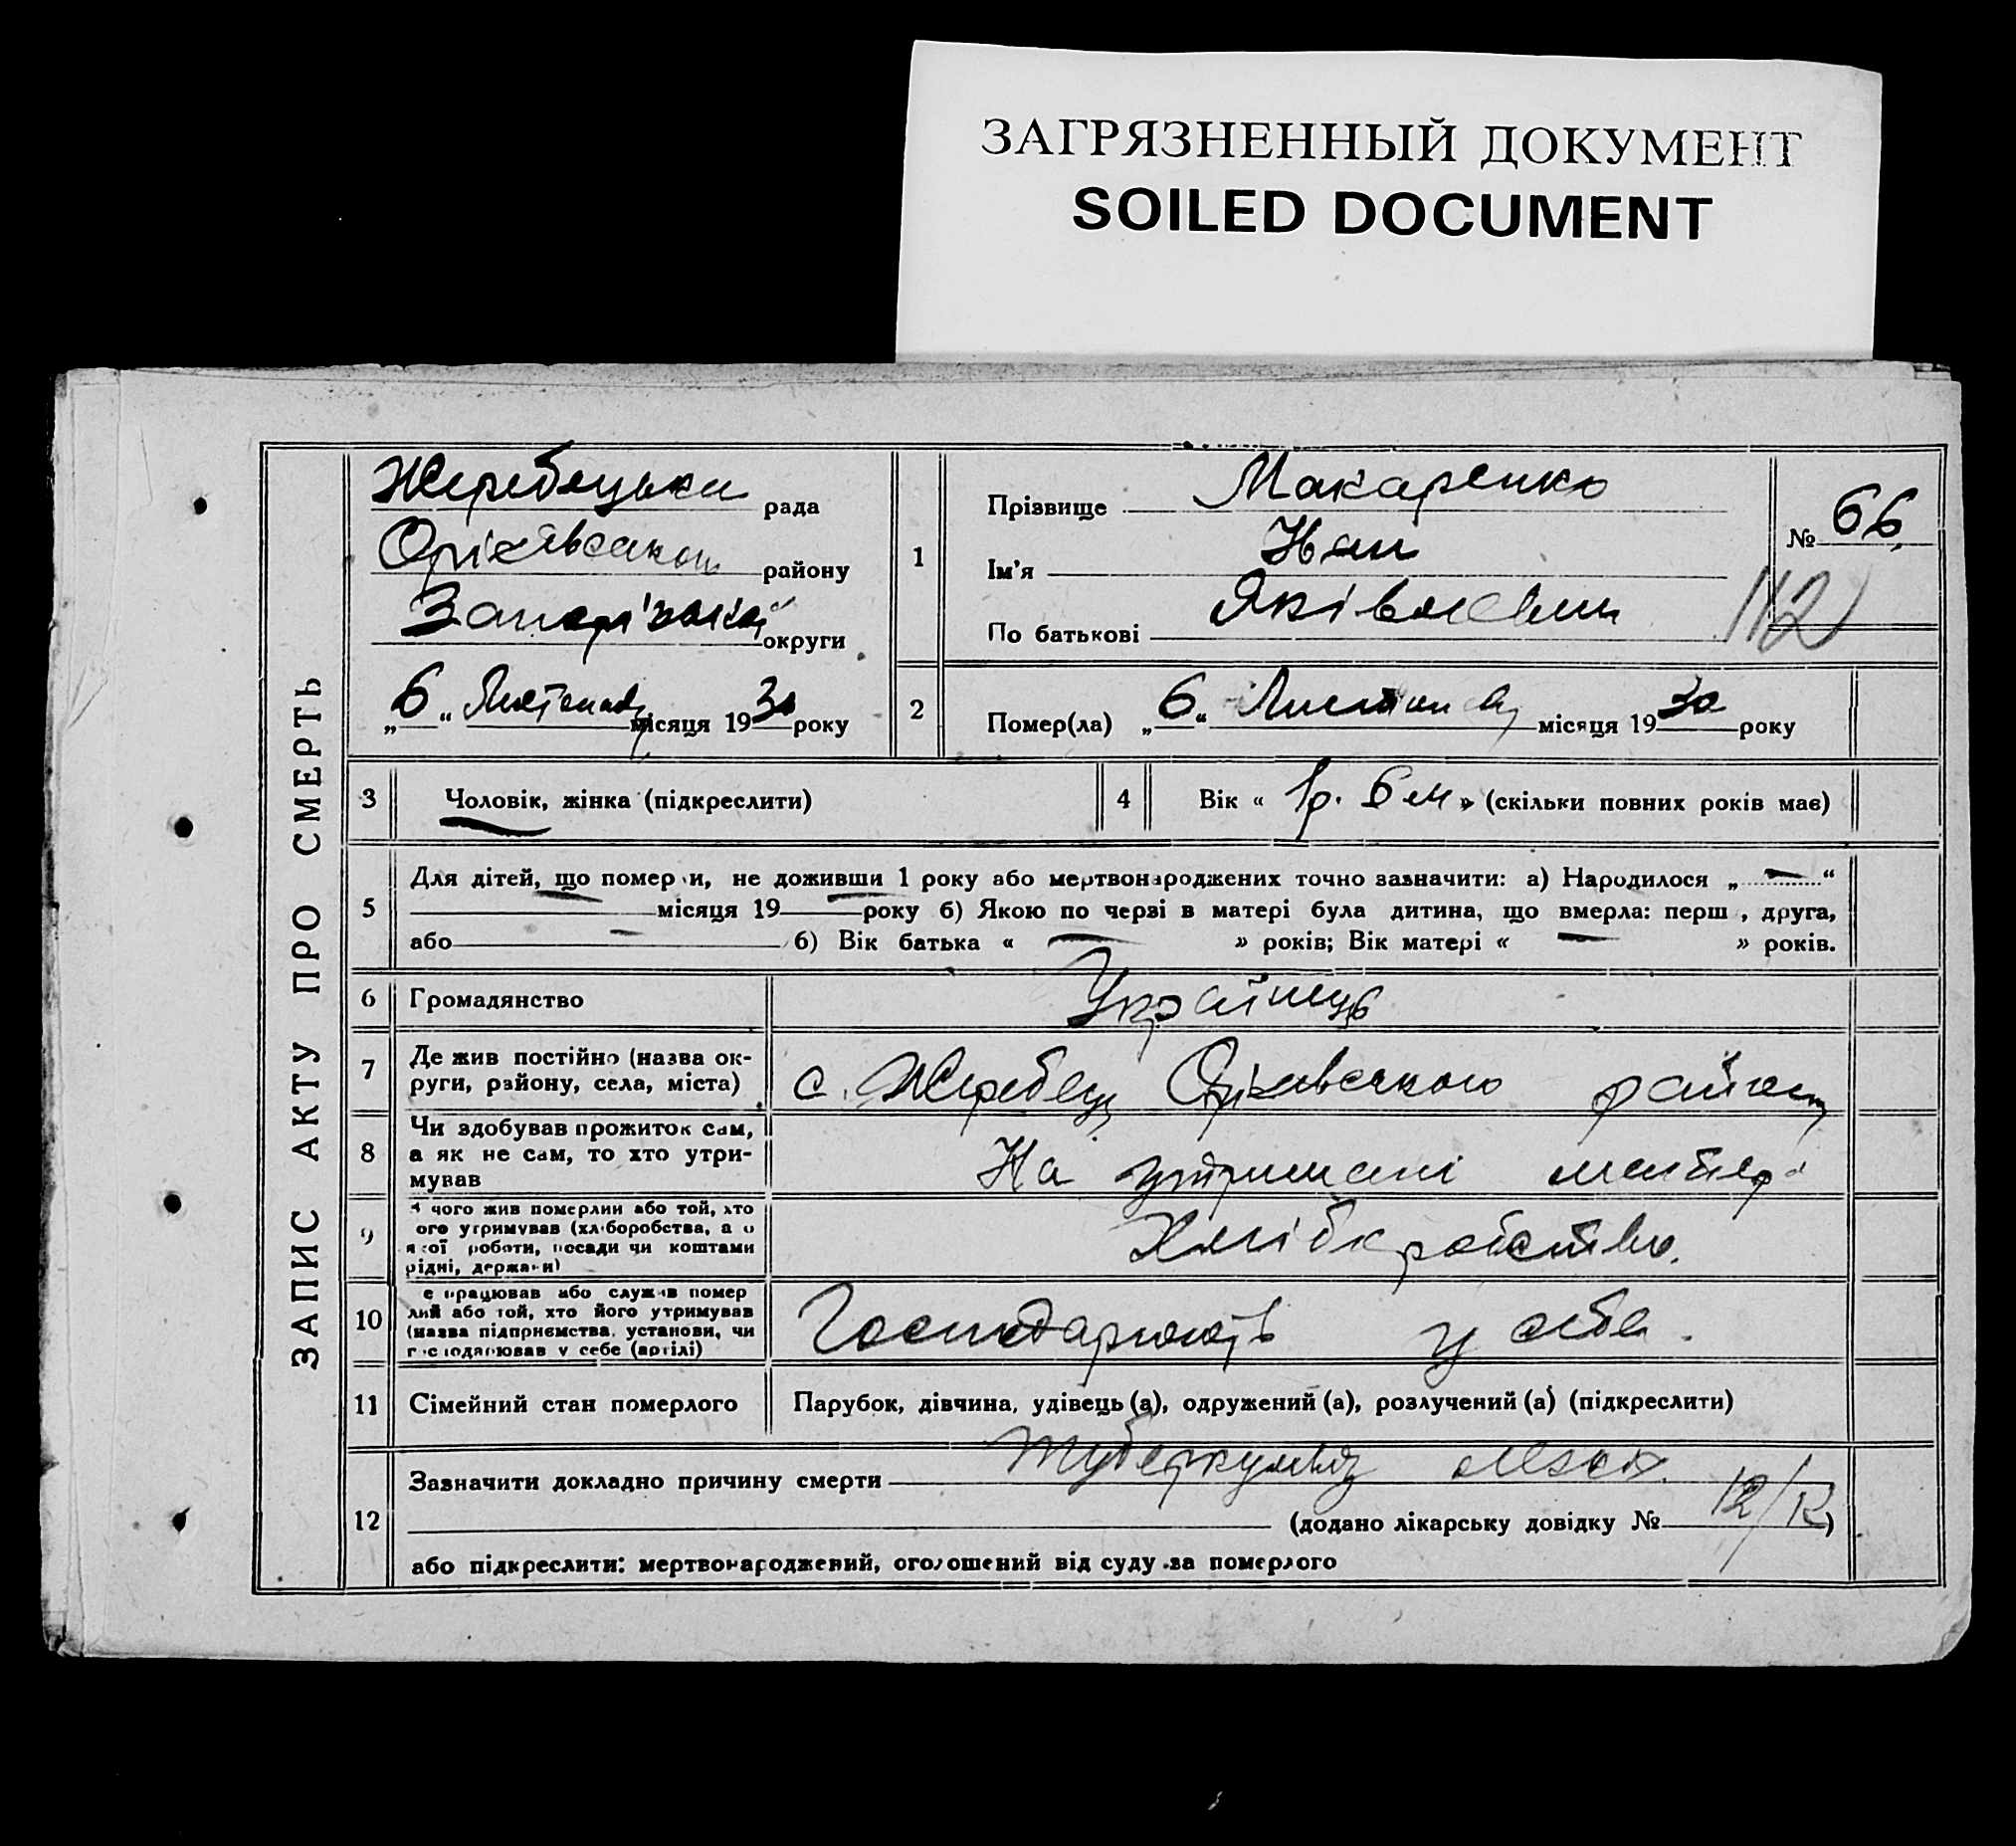 ЗАГРЯЗНЕННЫЙ ДОКУМЕНТ
SOILED DOCUMENT
ЗАПИС АКТУ ПРО СМЕРТЬ
Жеребецька рада
Оріхівського району
Запорізької округи
„6“ Листопаду місяця 1930 року
1
Прізвище Макаренко
Ім'я
По батькові Яківович
№ 66
112
2
Помер(ла) „6“ Листопаду місяця 1930 року
3 Чоловік, жінка (підкреслити)
4 Вік « 1р. 6 м » (скільки повних років має)
5 Для дітей, що померли, не доживши 1 року або мертвонароджених точно зазначити: а) Народилося „ — “
місяця 19 року б) Якою по черзі в матері була дитина, що вмерла: перш , друга,
або — б) Вік батька « — » років; Вік матері « — » років.
6 Громадянство Українець
7 Де жив постійно (назва ок-
руги, району, села, міста) с. Жеребец Оріхівського району
8 Чи здобував прожиток сам,
а як не сам, то хто утри-
мував На утримані матері
9 З чого жив померлий або той, хто
ого утримував (хліборобства, а о
якої роботи, посади чи коштами
рідні, держави) Хліборобство.
10 е працював або служив помер
лий або той, хто його утримував
(назва підприємства, установи, чи
господарював у себе (артілі) Господарюють у себе.
11 Сімейний стан померлого Парубок, дівчина, удівець (а), одружений (а), розлучений (а) (підкреслити)
12 Зазначити докладно причину смерти Туберкульоз
(додано лікарську довідку № 12/12)
або підкреслити: мертвонароджений, оголошений від суду за померлого